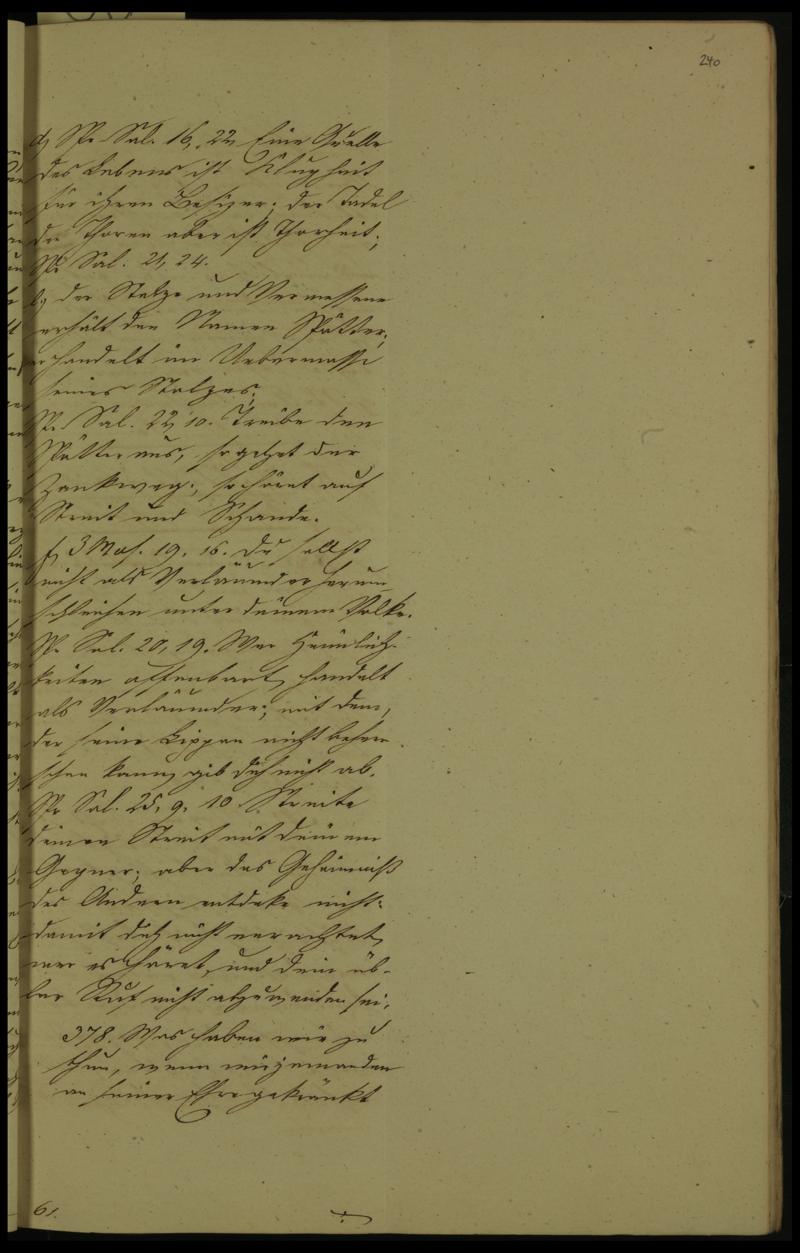 240
d, Spr. Sal. 16, 22. Eine Quelle
des Lebens ist Klugheit
für ihren Besizer; der Tadel
der Thoren aber ist Thorheit;
Spr. Sal. 21, 24.
e, der Stolze und Vermessene
erhält den Namen Spötter;
er handelt im Uebermasse
seines Stolzes;
Spr. Sal. 22, 10. Treibe den
Spötter aus, so gehet der
Zank weg; so höret auf
Streit und Schande.
f, 3 Mos. 19. 16. Du sollst
nicht als Verläumder herum
schleichen unter deinem Volke.
Spr. Sal. 20, 19. Wer Heimlich-
keiten offenbart, handelt
als Verläumder; mit dem,
der seine Lippen nicht beherr-
schen kann, gib dich nicht ab.
Spr. Sal. 25, 9, 10. Streite
deinen Streit mit deinem
Gegner; aber das Geheimniß
des Andern entdeke nicht:
damit dich nicht verachtet,
wer es höret, und dein üb-
ler Ruf nicht abzuwenden sei.
378. Was haben wir zu
thun, wenn wir jemanden
an seiner Ehre gekränkt
61.